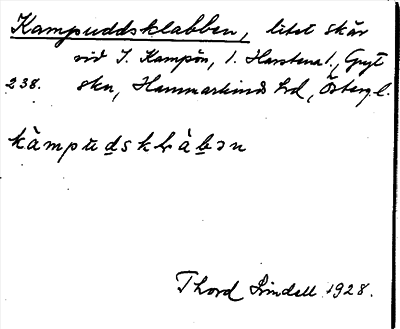 Kampuddsklabben, litet skär
vid I. Kampön, 1. Harstena 1., Gryt
238. skn, Hammarkinds hd, Östergl.
kàmpudsklàbən
Thord Lindell 1928.